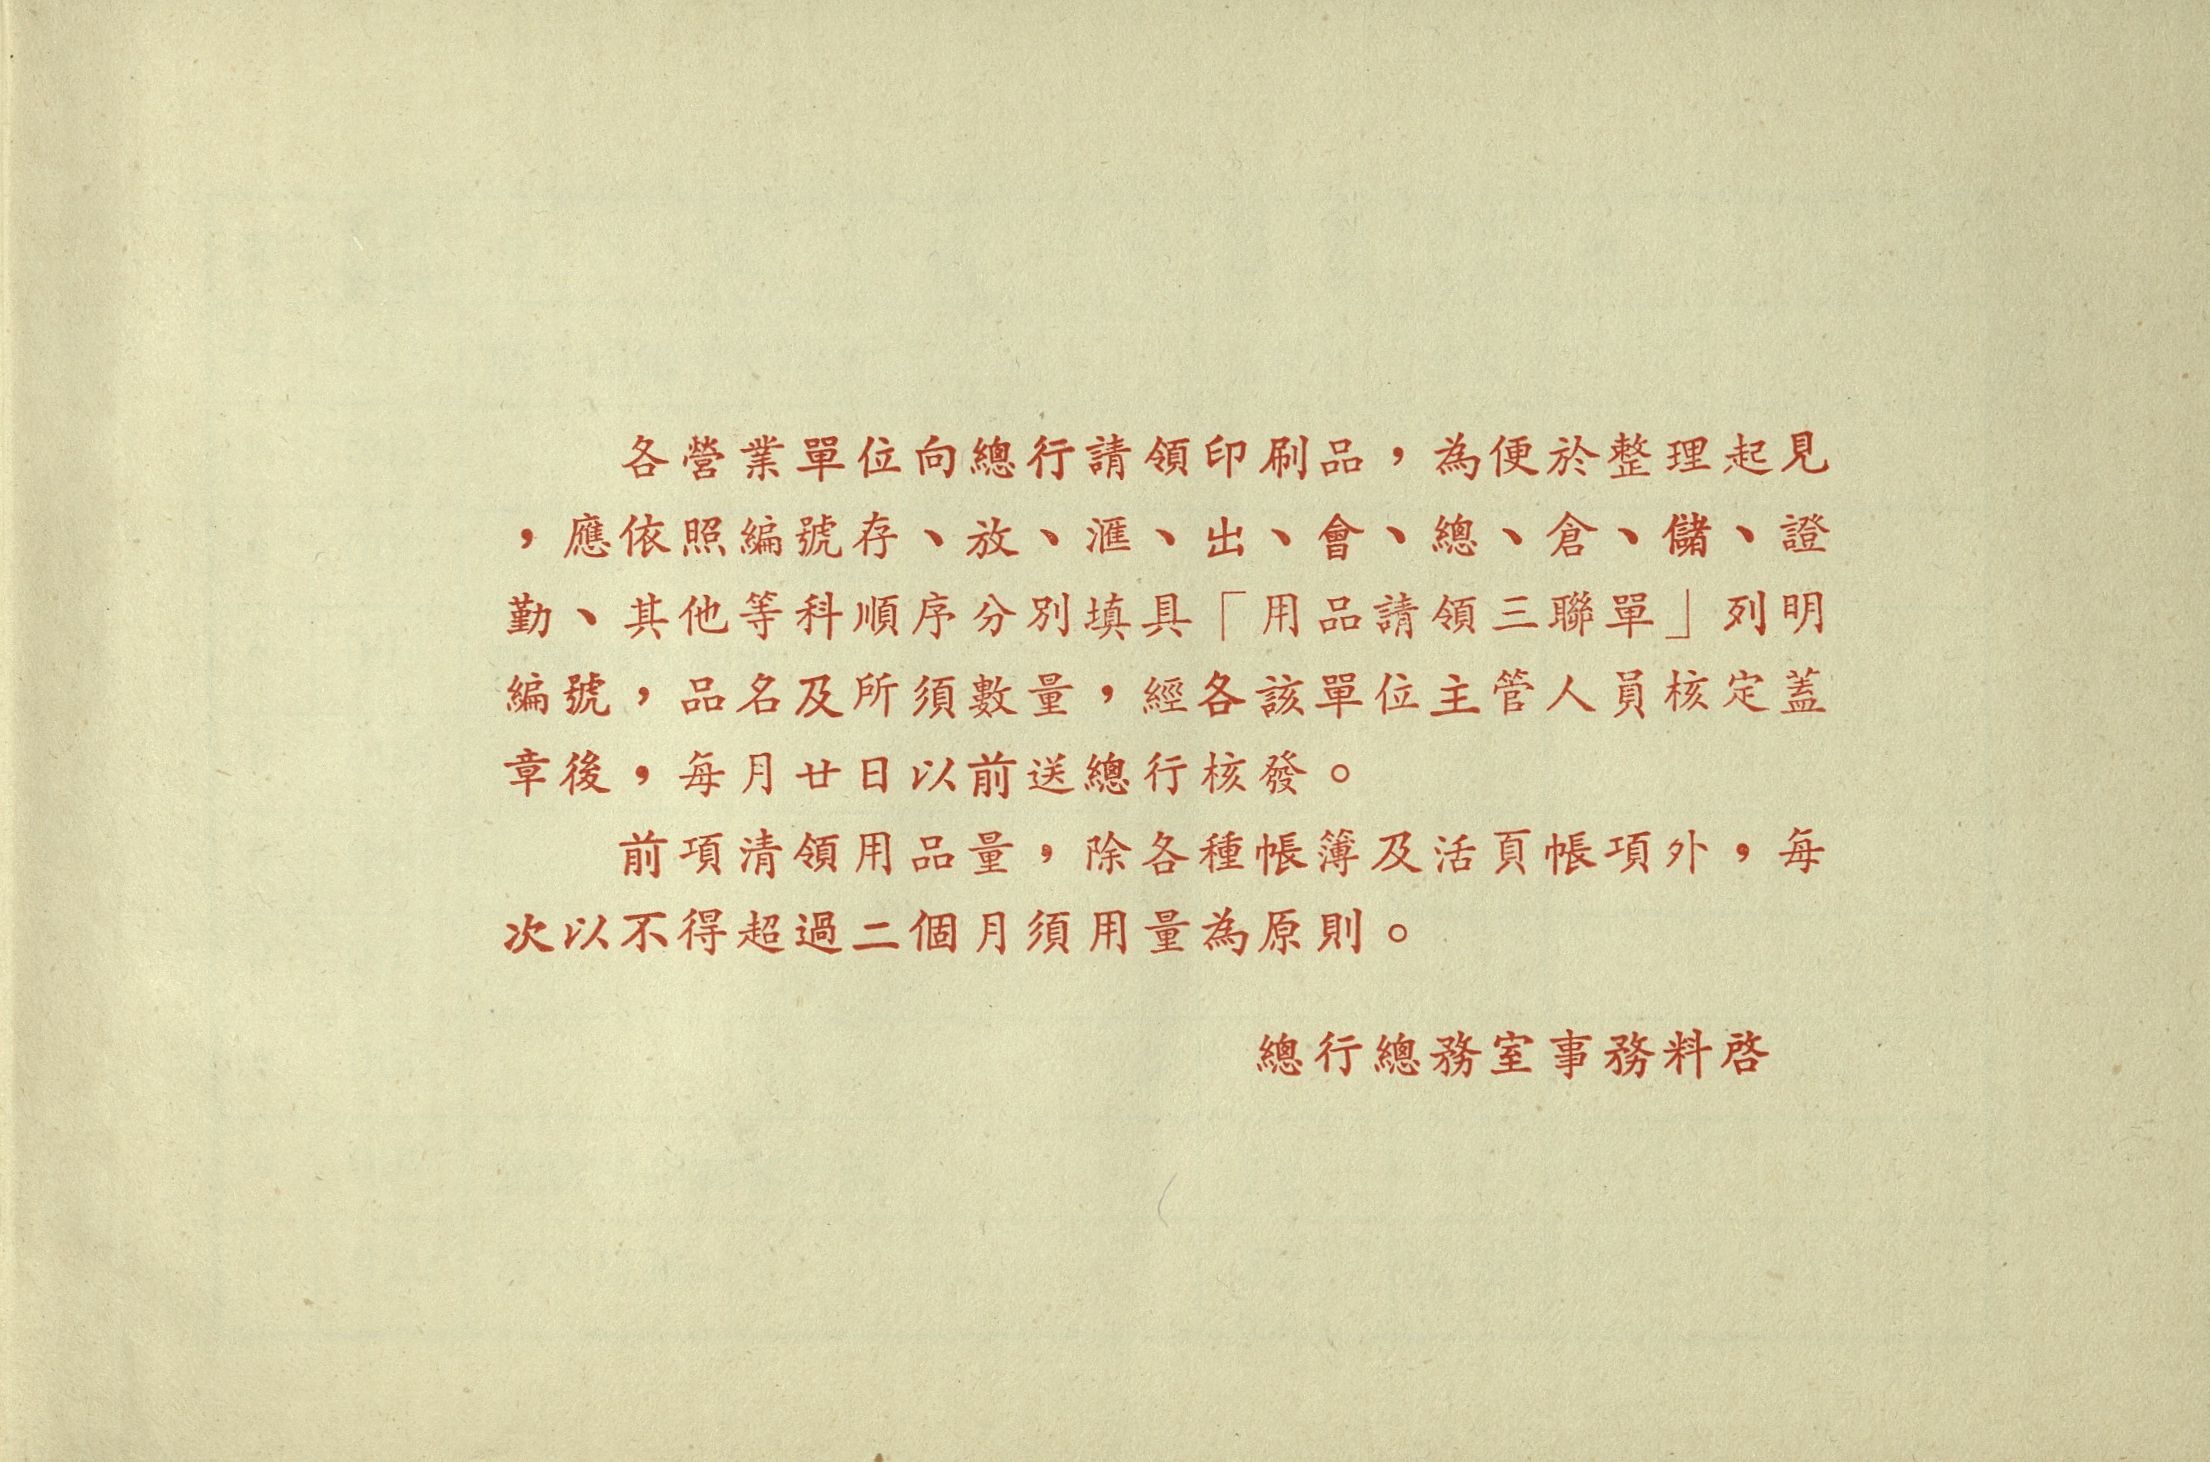 各營業單位向總行請領印刷品，為便於整理起見
，應依照編號存、放、滙、出、會、總、倉、儲、證
勤、其他等科順序分別填具「用品請領三聯單」列明
編號，品名及所須數量，經各該單位主管人員核定蓋
章後，每月廿日以前送總行核發。
前項清領用品量，除各種帳簿及活頁帳項外，每
次以不得超過二個月須用量為原則。
總行總務室事務料啓